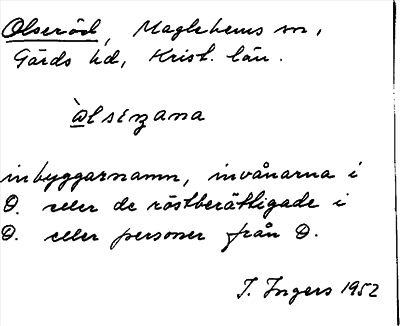 Olseröd, Maglehems sn,
Gärds hd, Krist. län.
àlsezana
inbyggarnamn, invånarna i
O. eller de röstberättigade i
O. eller personer från O.
I. Ingers 1952